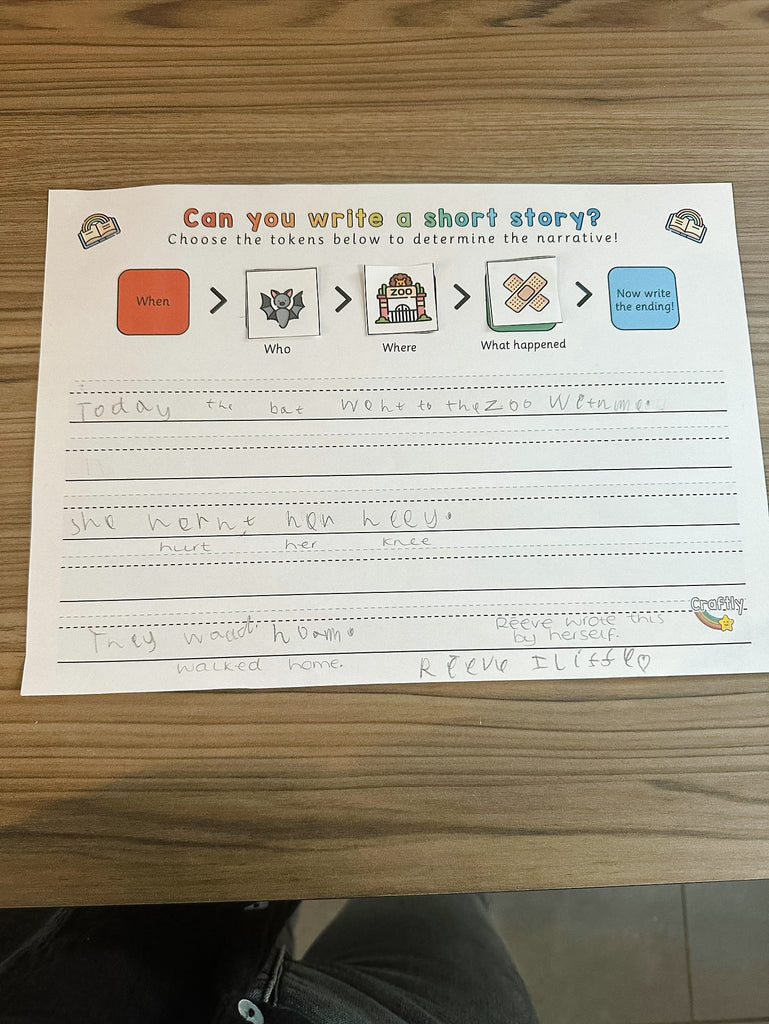 Can you write a short story?
Choose the tokens below to determine the narrative!
When
ZOO
Now write
the ending!
Who
Where
What happened
Today the bat went to the Zoo
she her heey.
hurt her knee
Craftly
Reeve wrote this
by herself.
They waad hoam.
walked home.
Reeve Iliffe